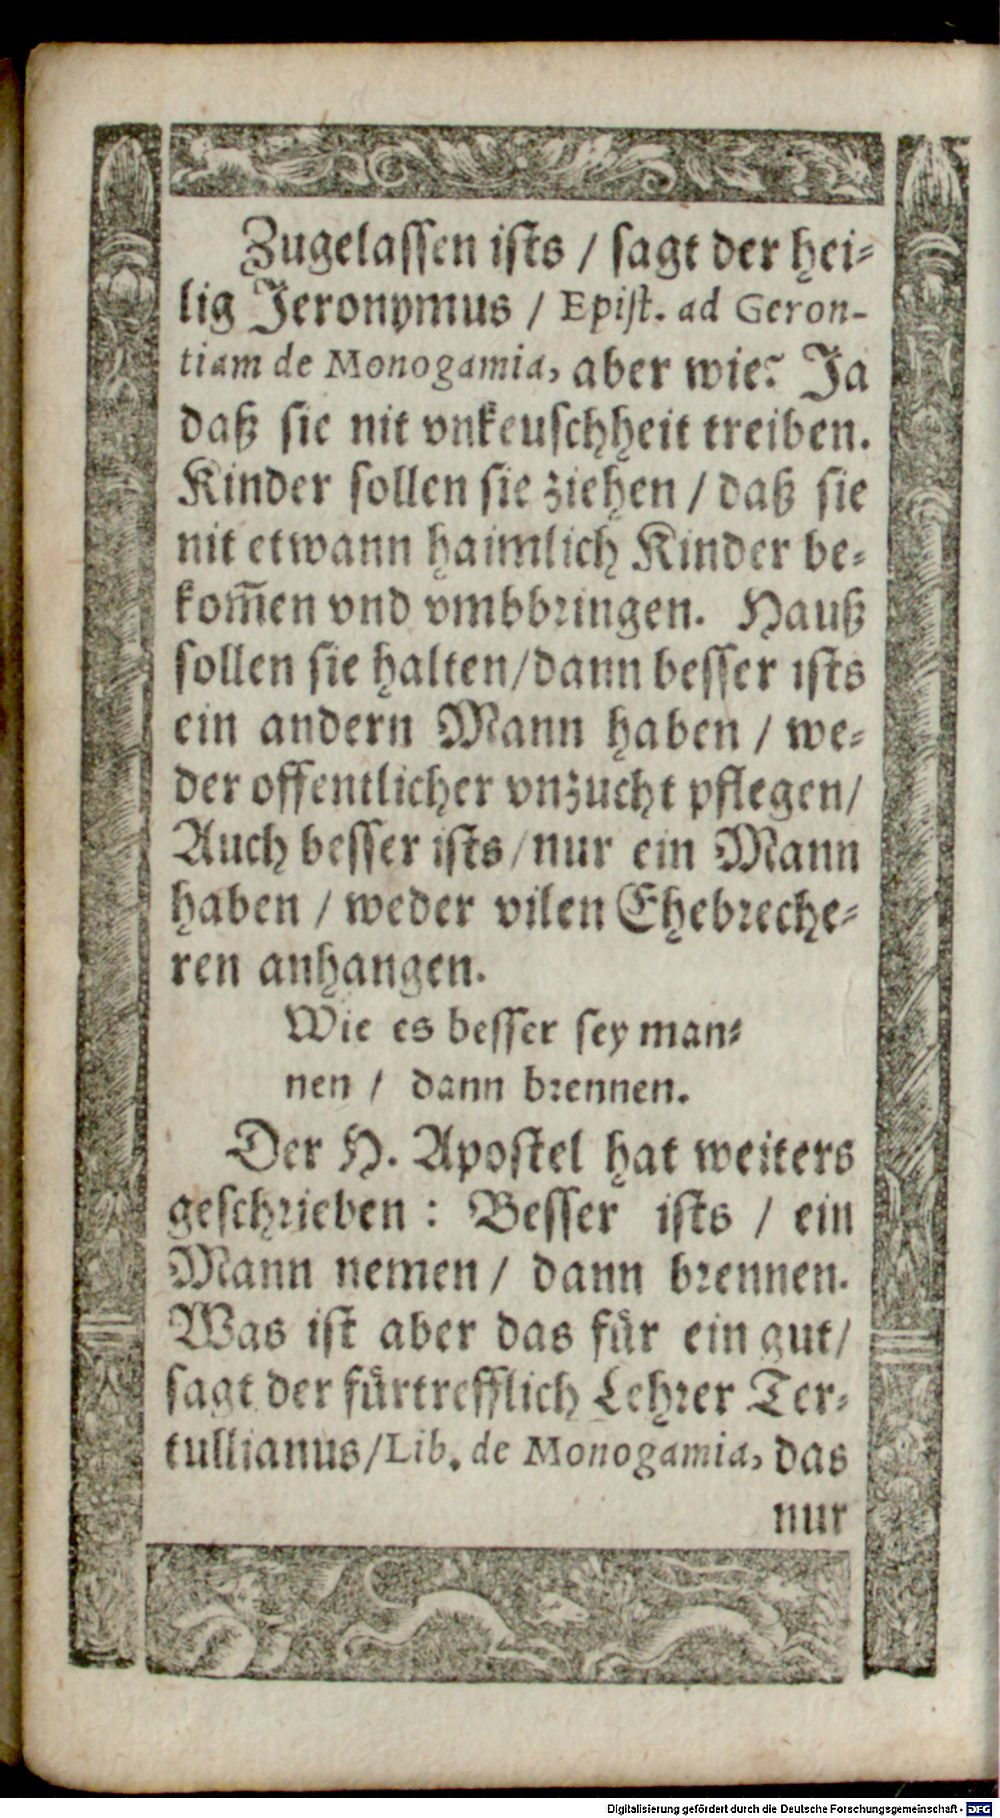 Zugelassen ists / sagt der hei-
lig Jeronymus / Epist. ad Geron-
tiam de Monogamia, aber wie? Ja
daß sie nit vnkeuschheit treiben.
Kinder sollen sie ziehen / daß sie
nit etwann haimlich Kinder be-
kom̃en vnd vmbbringen. Hauß
sollen sie halten / dann besser ists
ein andern Mann haben / we-
der offentlicher vnzucht pflegen /
Auch besser ists / nur ein Mann
haben / weder vilen Ehebreche-
ren anhangen.
Wie es besser sey man-
nen / dann brennen.
Der H. Apostel hat weiters
geschrieben : Besser ists / ein
Mann nemen / dann brennen.
Was ist aber das für ein gut /
sagt der fürtrefflich Lehrer Ter-
tullianus / Lib. de Monogamia, das
nur
Digitalisierung gefördert durch die Deutsche Forschungsgemeinschaft - DFG